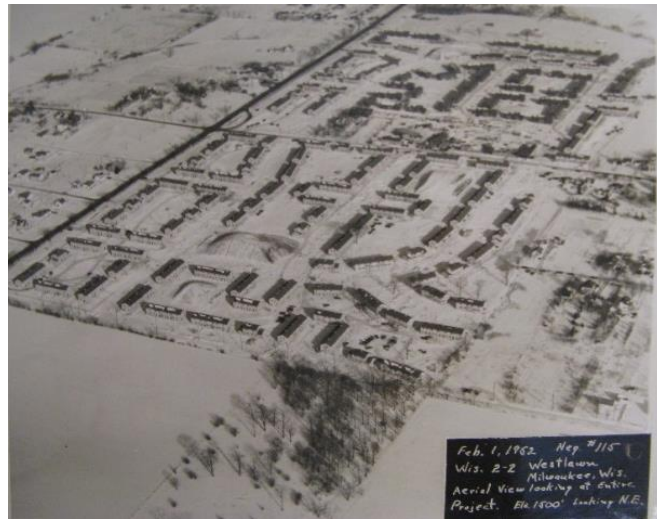 Feb. 1, 1952 Neg. #115
Wis. 2-2 Westlawn
Milwaukee, Wis.
Aerial View looking at Entire
Project. Ele. 1500' Looking N.E.